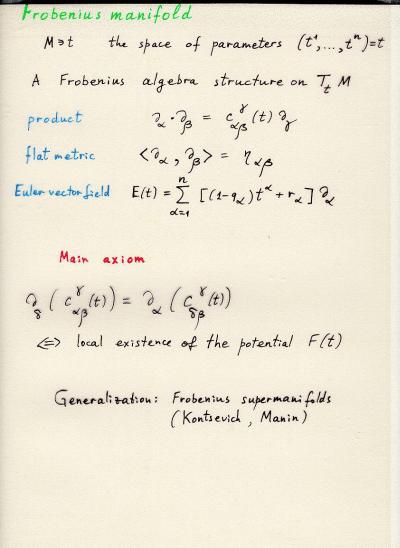 Frobenius manifold
M∋t the space of parameters (t¹,...,tⁿ)=t
A Frobenius algebra structure on T_t M
product ∂_α · ∂_β = c_{αβ}^γ(t) ∂_γ
flat metric <∂_α, ∂_β> = η_{αβ}
Euler vector field E(t) = ∑_{α=1}^n [(1-q_α)t^α + r_α] ∂_α
Main axiom
∂_δ (c_{αβ}^γ(t)) = ∂_α (c_{δβ}^γ(t))
⇔ local existence of the potential F(t)
Generalization: Frobenius supermanifolds
(Kontsevich, Manin)